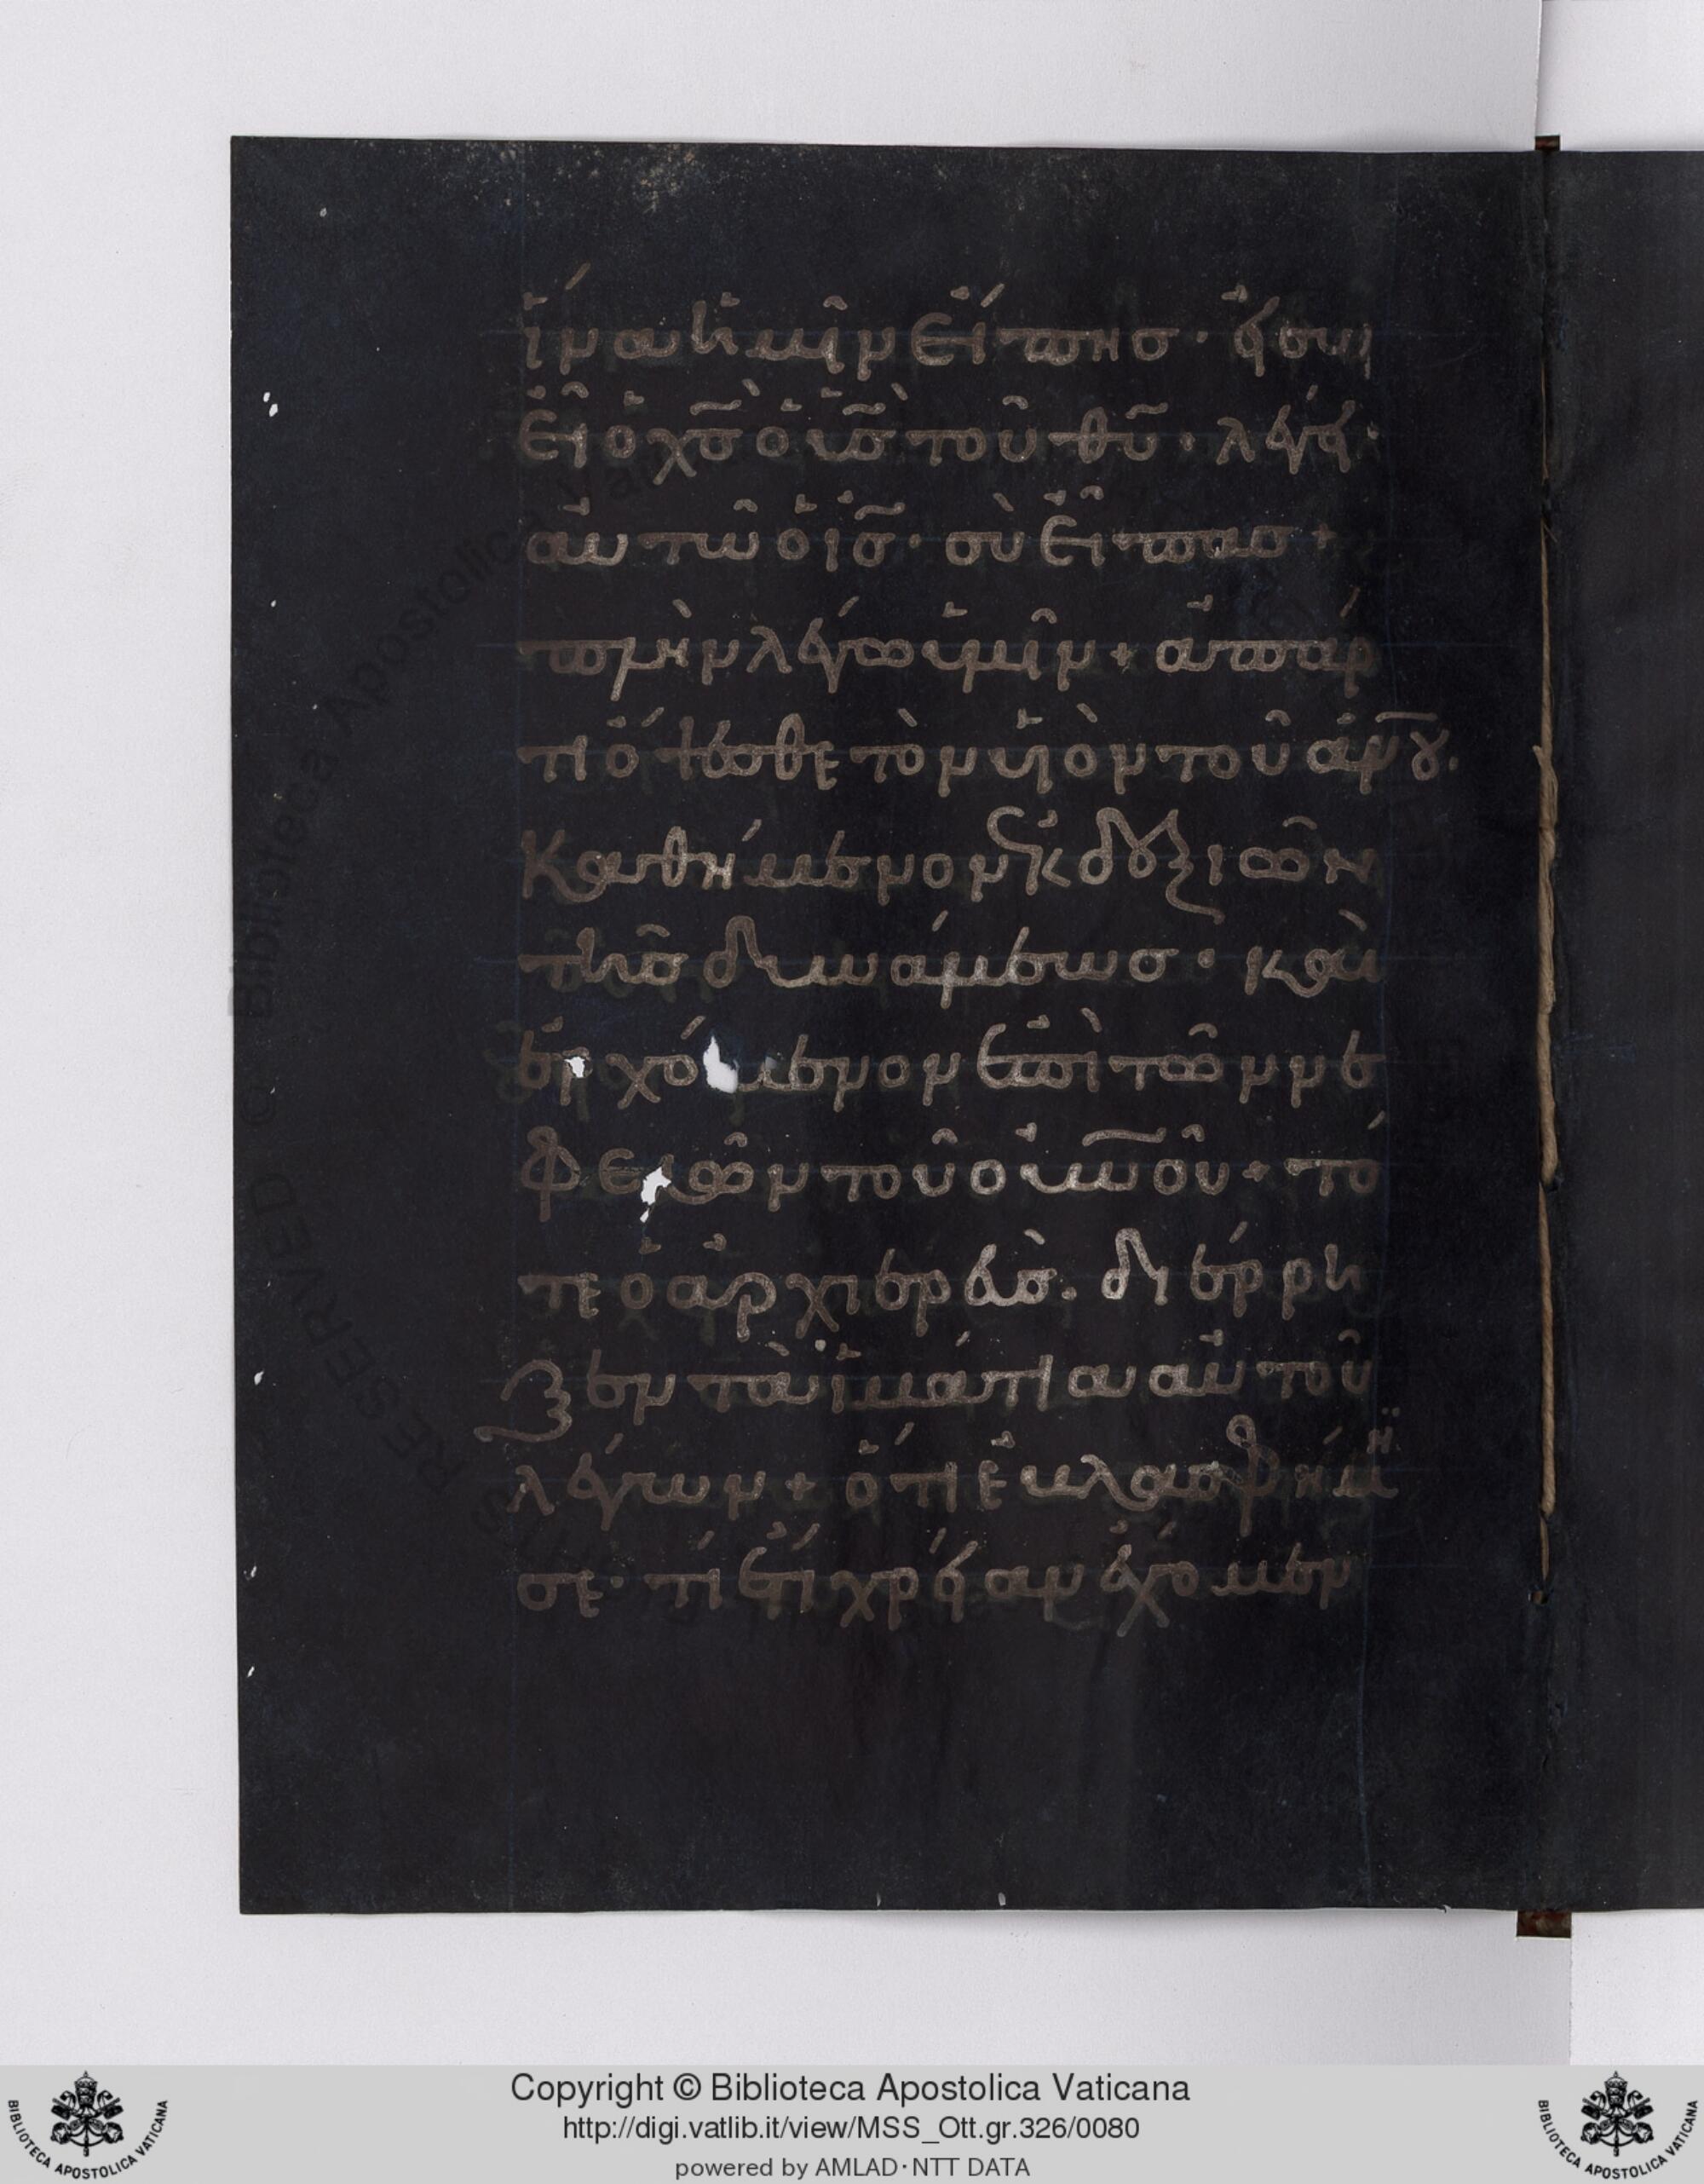 ἵνα ἡμῖν εἴπῃς· εἰ σὺ
εἶ ὁ χ̅ς̅ ὁ υἱ̅ς̅ τοῦ θ̅υ̅· λέγει
αὐτῶ ὁ ι̅ς̅· σὺ εἶπας +
πλὴν λέγω ὑμῖν + ἀπάρ
τι ὄψεσθε τὸν υἱὸν τοῦ ἀν̅ου.
Καθήμενον ἐκ δεξιῶν
τῆς δυνάμεως· καὶ
ἐρχόμενον ἐπὶ τῶν νε
φελῶν τοῦ οὐ̅ν̅οῦ + τό
τε ὁ ἀρχιερεὺς. διέρρη
ξεν τὰ ἱμάτια αὐτοῦ
λέγων + ὅτι ἐβλασφήμη
σε· τί ἔτι χρείαν ἔχομεν
Copyright © Biblioteca Apostolica Vaticana
http://digi.vatlib.it/view/MSS_Ott.gr.326/0080
powered by AMLAD·NTT DATA
BIBLIOTECA APOSTOLICA VATICANA
BIBLIOTECA APOSTOLICA VATICANA